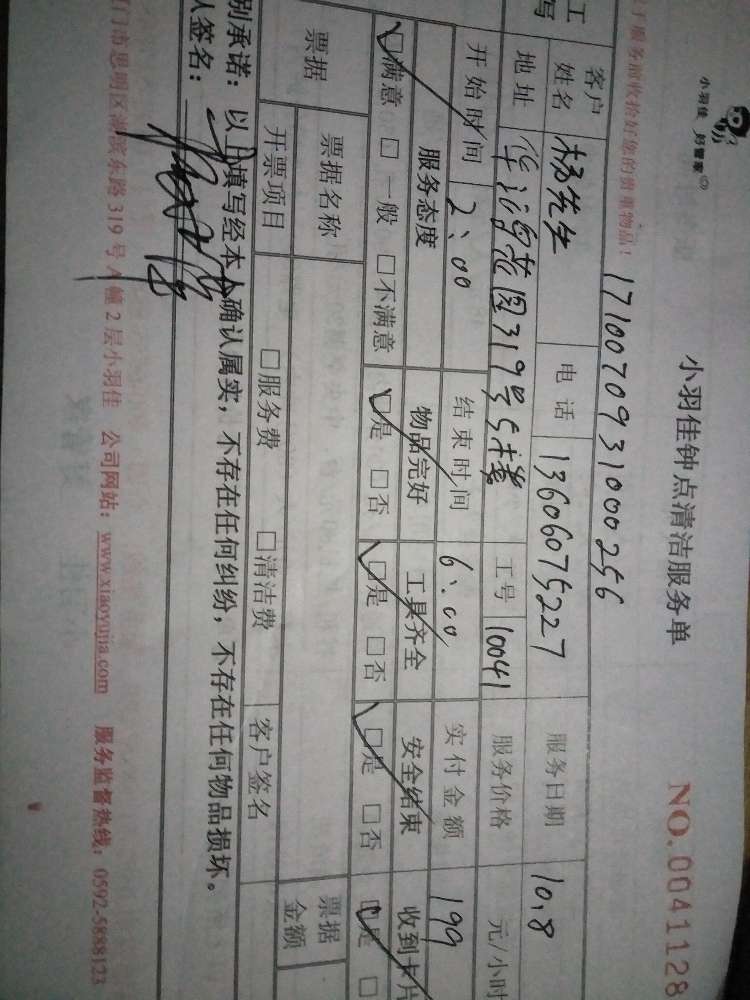 小羽佳 好管家
小羽佳钟点清洁服务单
NO.0041128
于服务前收拾好您的贵重物品！
1710070931000256
工
写
客户姓名 杨先生 电话 13606075227 服务日期 10.8
地址 华鸿花园319号5楼 工号 10041 服务价格 元/小时
开始时间 2:00 结束时间 6:00 实付金额 199
服务态度 物品完好 工具齐全 安全结束 收到卡片
☑满意 □一般 □不满意 ☑是 □否 ☑是 □否 ☑是 □否 ☑是 □
票据 票据名称 票据金额
开票项目 □服务费 □清洁费 客户签名
别承诺：以上填写经本人确认属实，不存在任何纠纷，不存在任何物品损坏。
人签名：
门市思明区湖滨东路319号A幢2层小羽佳 公司网站：www.xiaoyujia.com 服务监督热线：0592-5888123